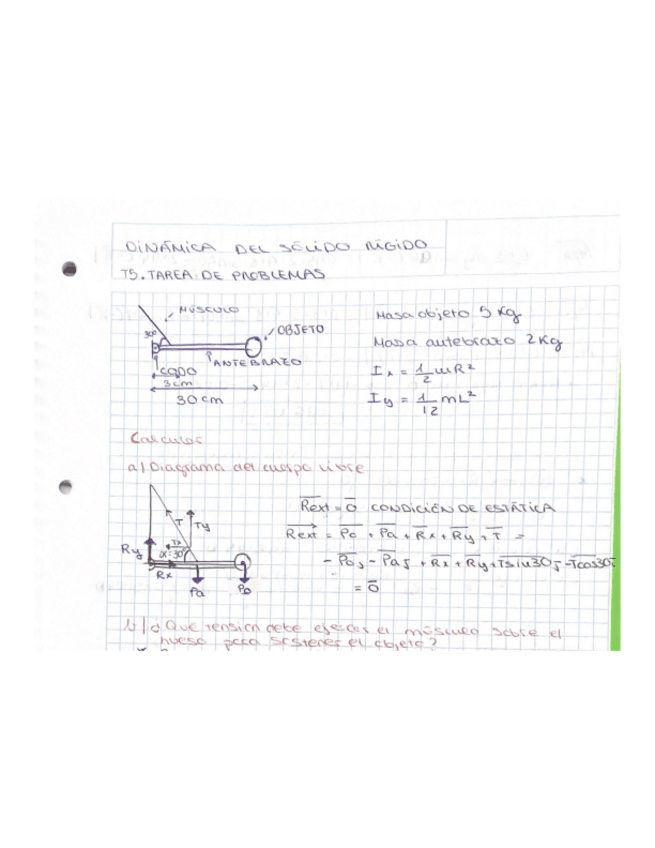 DINÁMICA DEL SÓLIDO RÍGIDO
T5. TAREA DE PROBLEMAS
MÚSCULO
30º
OBJETO
ANTEBRAZO
CODO
3cm
30cm
Masa objeto 5 Kg
Masa antebrazo 2 Kg
Ix = 1/2 mR²
Iy = 1/12 mL²
Calculos
a) Diagrama del cuerpo libre
T
Ty
Tx
α=30º
Ry
Rx
Pa
Po
Rext = 0 CONDICIÓN DE ESTÁTICA
Rext = Po + Pa + Rx + Ry + T =
- Poj - Paj + Rx + Ry + Tsin30j - Tcos30i
= 0
b) ¿Que tension debe ejecer el músculo sobre el
hueso para sostener el objeto?